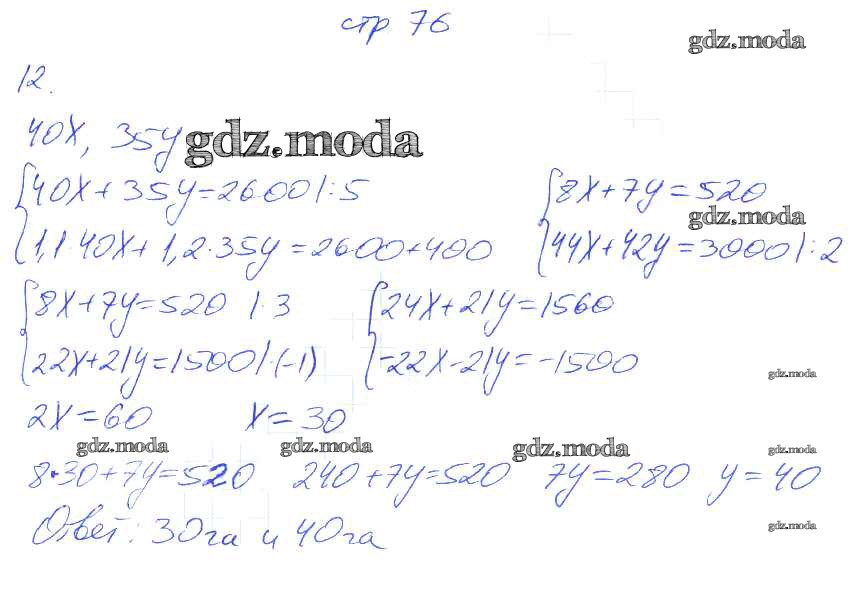 стр 76
gdz.moda
12.
40x, 35y
gdz.moda
{40x+35y=2600 |:5
{8x+7y=520
gdz.moda
{1,1·40x+1,2·35y=2600+400
{44x+42y=3000 |:2
{8x+7y=520 |·3
{24x+21y=1560
{22x+21y=1500 |·(-1)
{-22x-21y=-1500
gdz.moda
2x=60 x=30
gdz.moda gdz.moda gdz.moda gdz.moda
8·30+7y=520 240+7y=520 7y=280 y=40
Ответ: 30га и 40га
gdz.moda